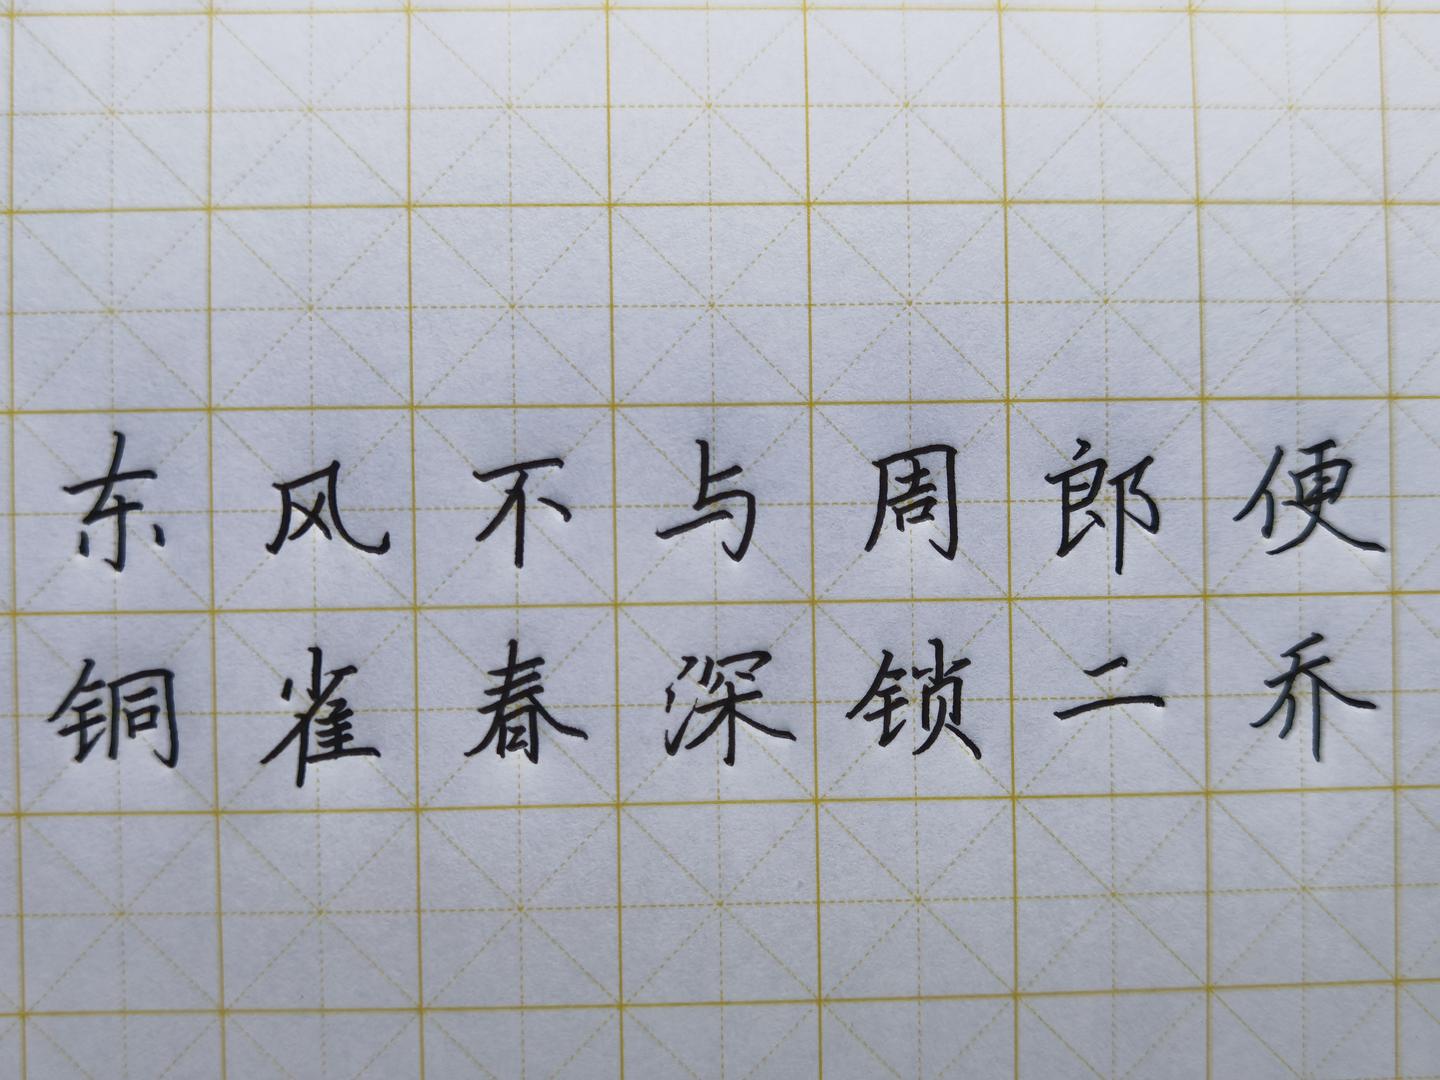 东风不与周郎便
铜雀春深锁二乔